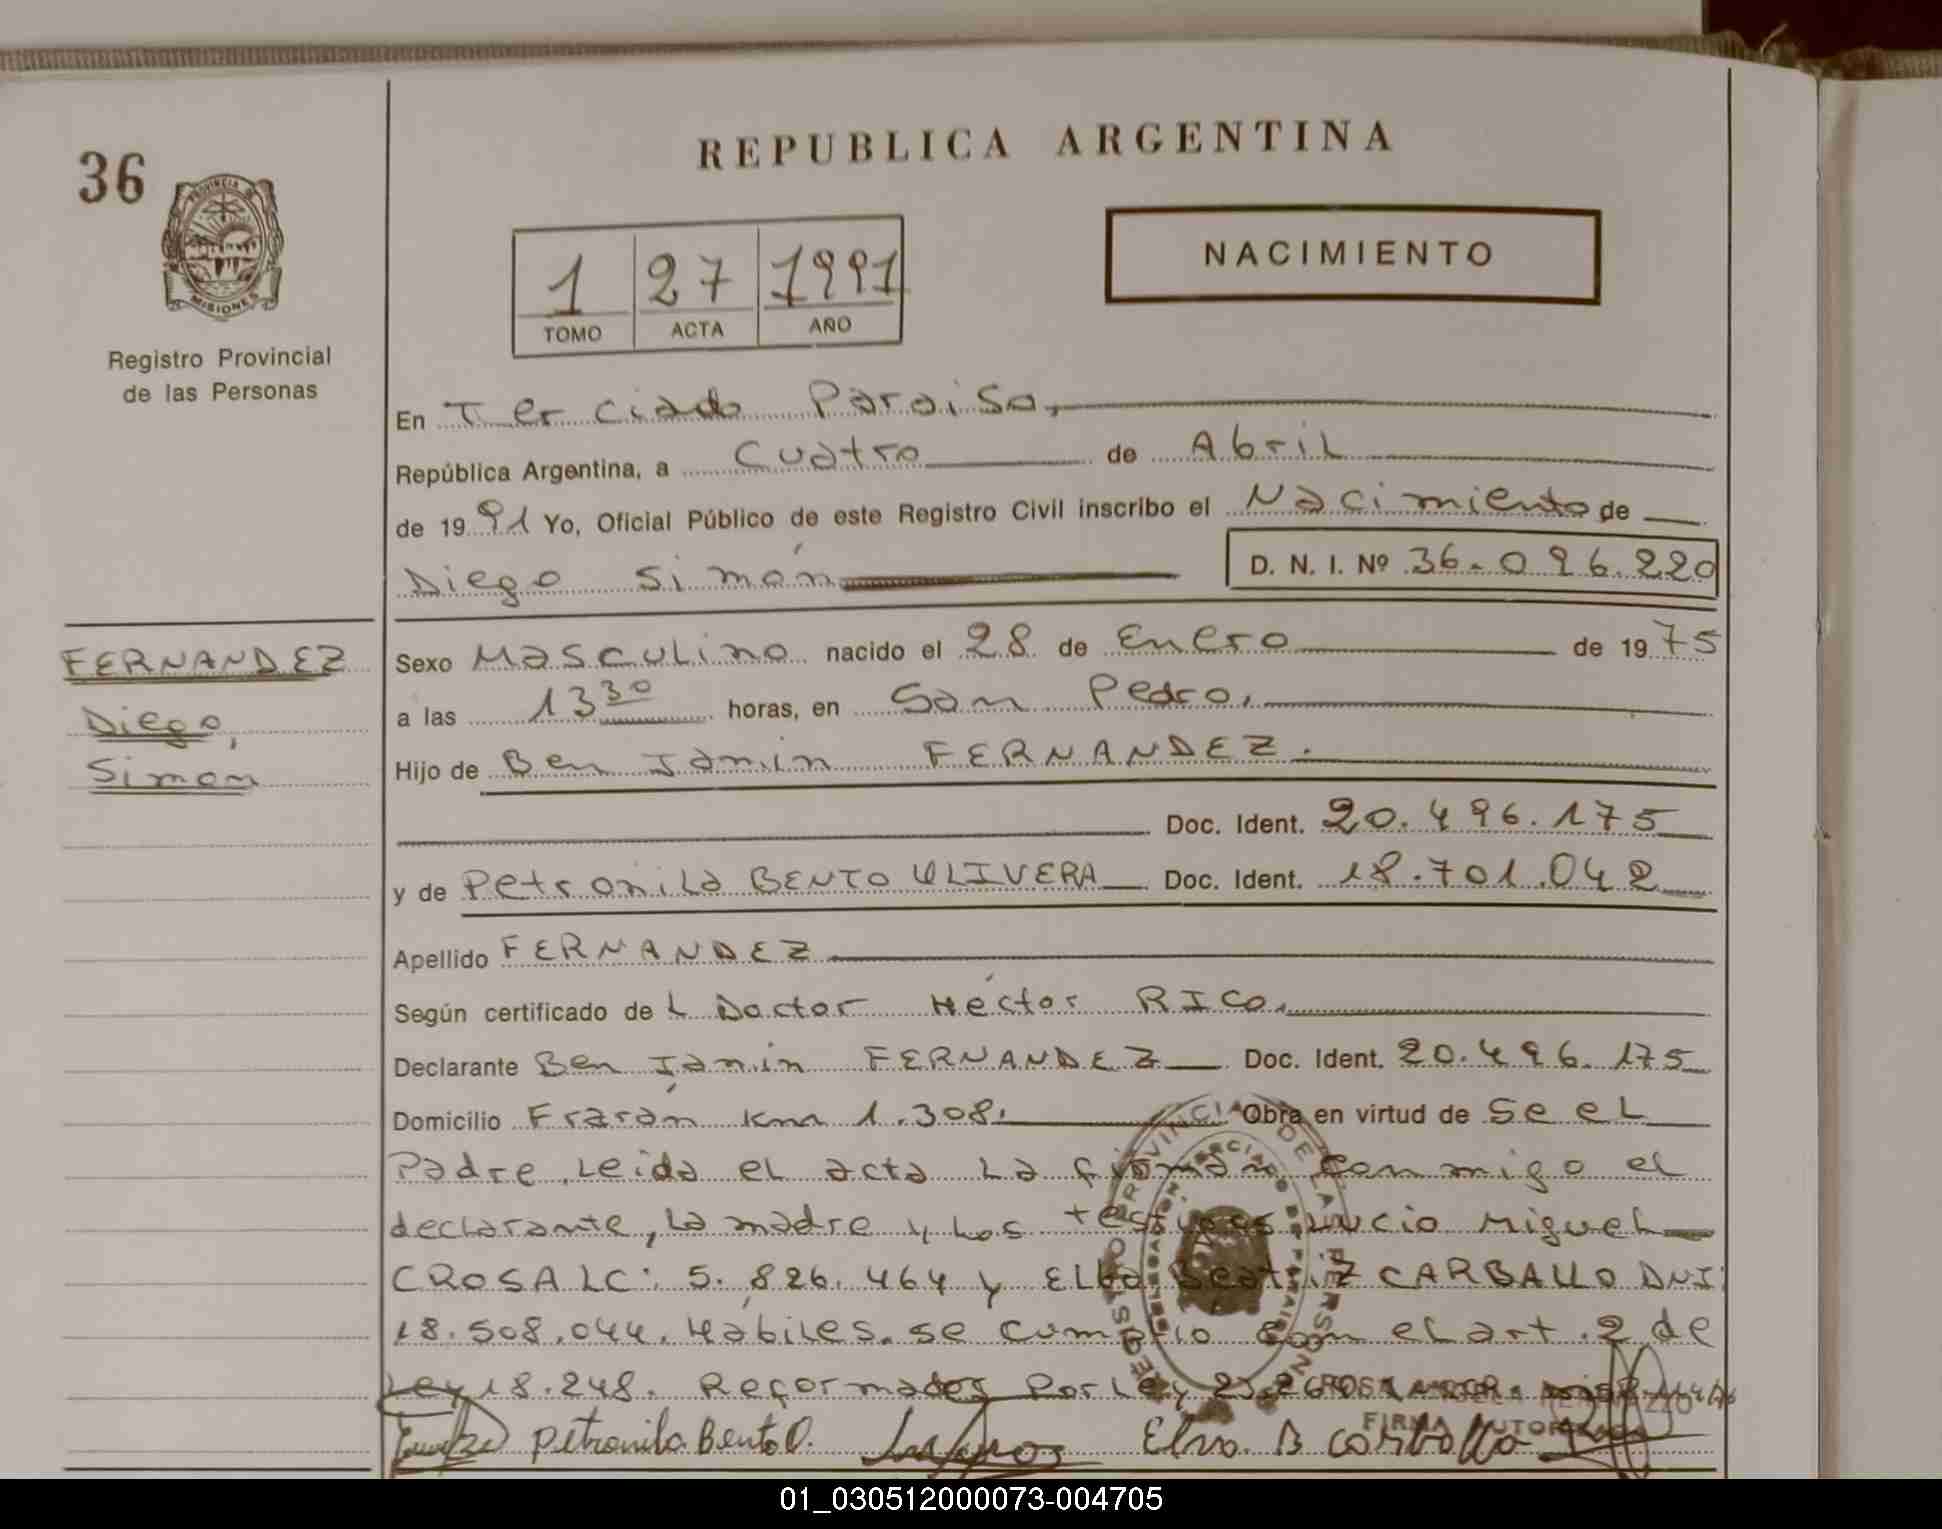 REPUBLICA ARGENTINA
36
PROVINCIA DE
MISIONES
NACIMIENTO
1 27 1991
TOMO ACTA AÑO
Registro Provincial
de las Personas
En Terciado Paraiso,
República Argentina, a Cuatro de Abril
de 19 91 Yo, Oficial Público de este Registro Civil inscribo el Nacimiento de
Diego Simón
D. N. I. Nº 36.096.220
FERNANDEZ
Diego,
Simon
Sexo Masculino nacido el 28 de Enero de 19 75
a las 13 30 horas, en San Pedro,
Hijo de Benjamin FERNANDEZ.
Doc. Ident. 20.496.175
y de Petronila BENTO ULIVERA Doc. Ident. 18.701.042
Apellido FERNANDEZ
Según certificado de L Doctor Héctor RICO,
Declarante Benjamin FERNANDEZ Doc. Ident. 20.496.175
Domicilio Frarán km 1.308. Obra en virtud de Se el
Padre, Leida el acta La firman conmigo el
declarante, La madre y Los testigos Lucio Miguel
CROSA LC: 5.826.464 y Elba Beatriz CARBALLO DNI:
18.508.044. Hábiles. se cumplio con el art. 2 de
Ley 18.248. Reformado Por Ley
REGISTRO PROVINCIAL DE LAS PERSONAS
FIRMA AUTORIZADA
Petronila Bento O. Elva. B Carballo
01_030512000073-004705